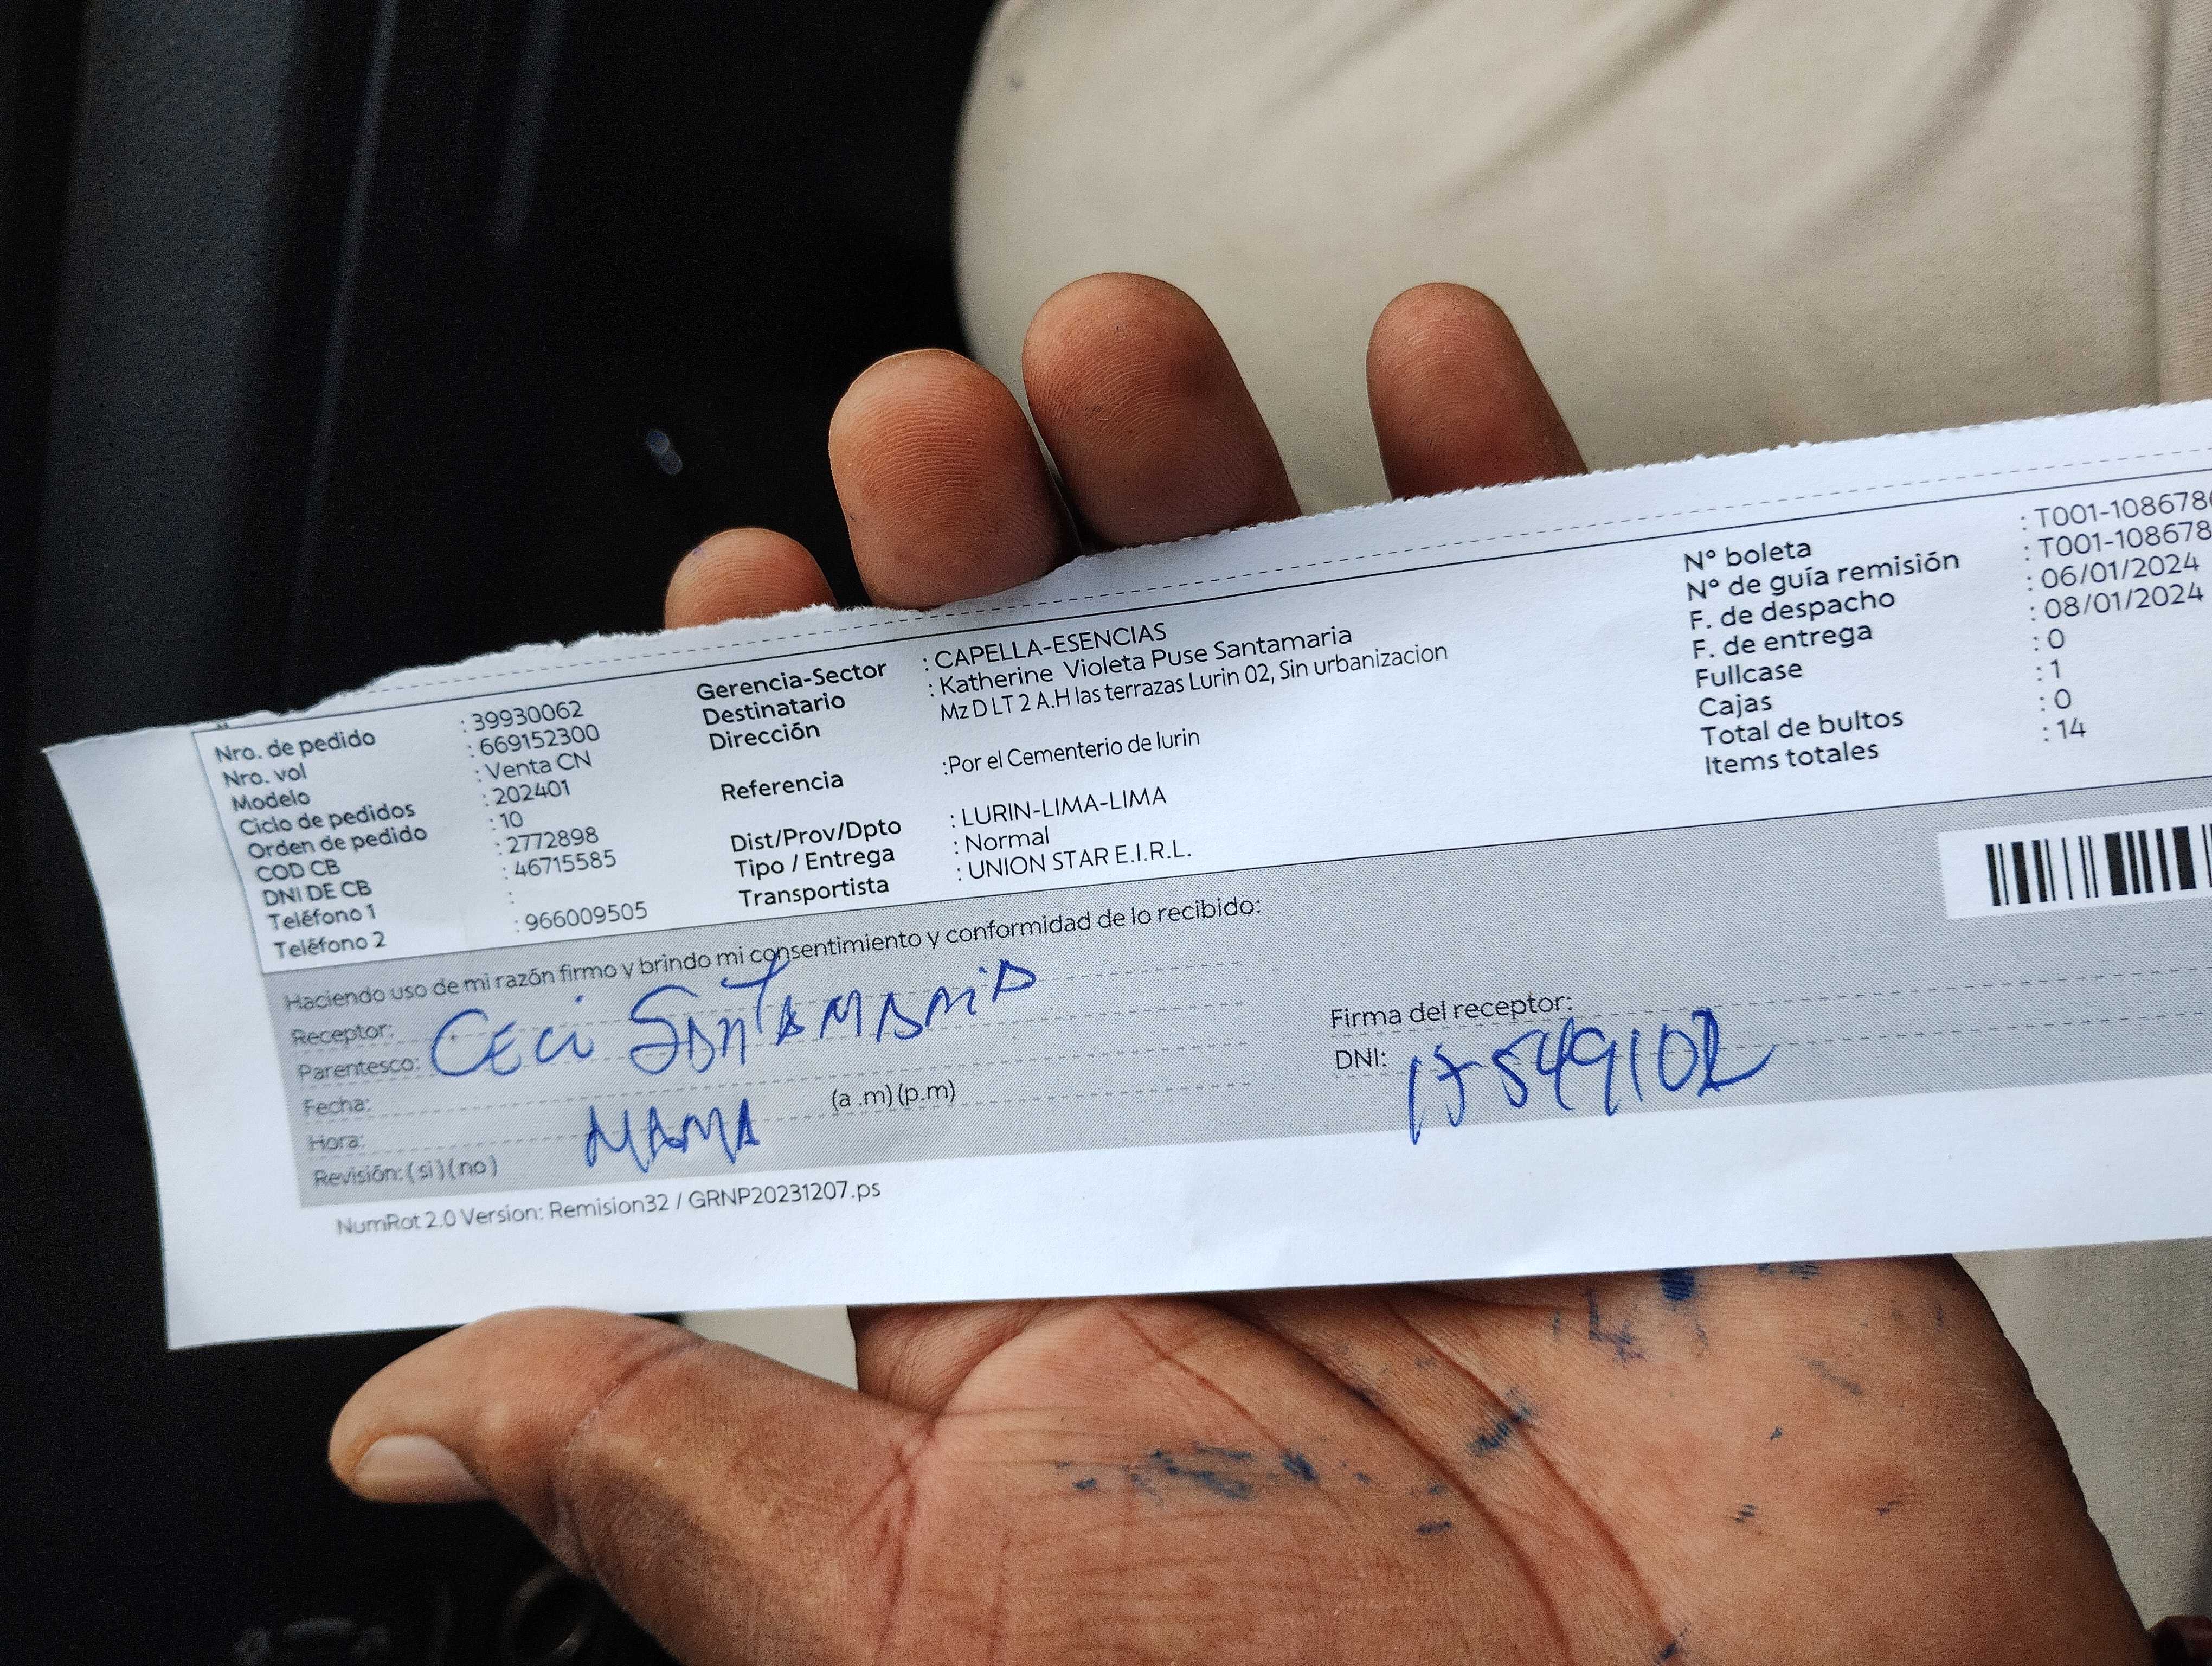 Nro. de pedido : 39930062
Nro. vol : 669152300
Modelo : Venta CN
Ciclo de pedidos : 202401
Orden de pedido : 10
COD CB : 2772898
DNI DE CB : 46715585
Teléfono 1 :
Teléfono 2 : 966009505
Gerencia-Sector : CAPELLA-ESENCIAS
Destinatario : Katherine Violeta Puse Santamaria
Dirección Mz D LT 2 A.H las terrazas Lurin 02, Sin urbanizacion
Referencia :Por el Cementerio de lurin
Dist/Prov/Dpto : LURIN-LIMA-LIMA
Tipo / Entrega : Normal
Transportista : UNION STAR E.I.R.L.
N° boleta : T001-108678
N° de guía remisión : T001-108678
F. de despacho : 06/01/2024
F. de entrega : 08/01/2024
Fullcase : 0
Cajas : 1
Total de bultos : 0
Items totales : 14
Haciendo uso de mi razón firmo y brindo mi consentimiento y conformidad de lo recibido:
Receptor: CECI SANTAMARIA
Parentesco:
Fecha:
Hora: MAMA (a .m) (p.m)
Revisión: (si) (no)
Firma del receptor:
DNI: 17549102
NumRot 2.0 Version: Remision32 / GRNP20231207.ps